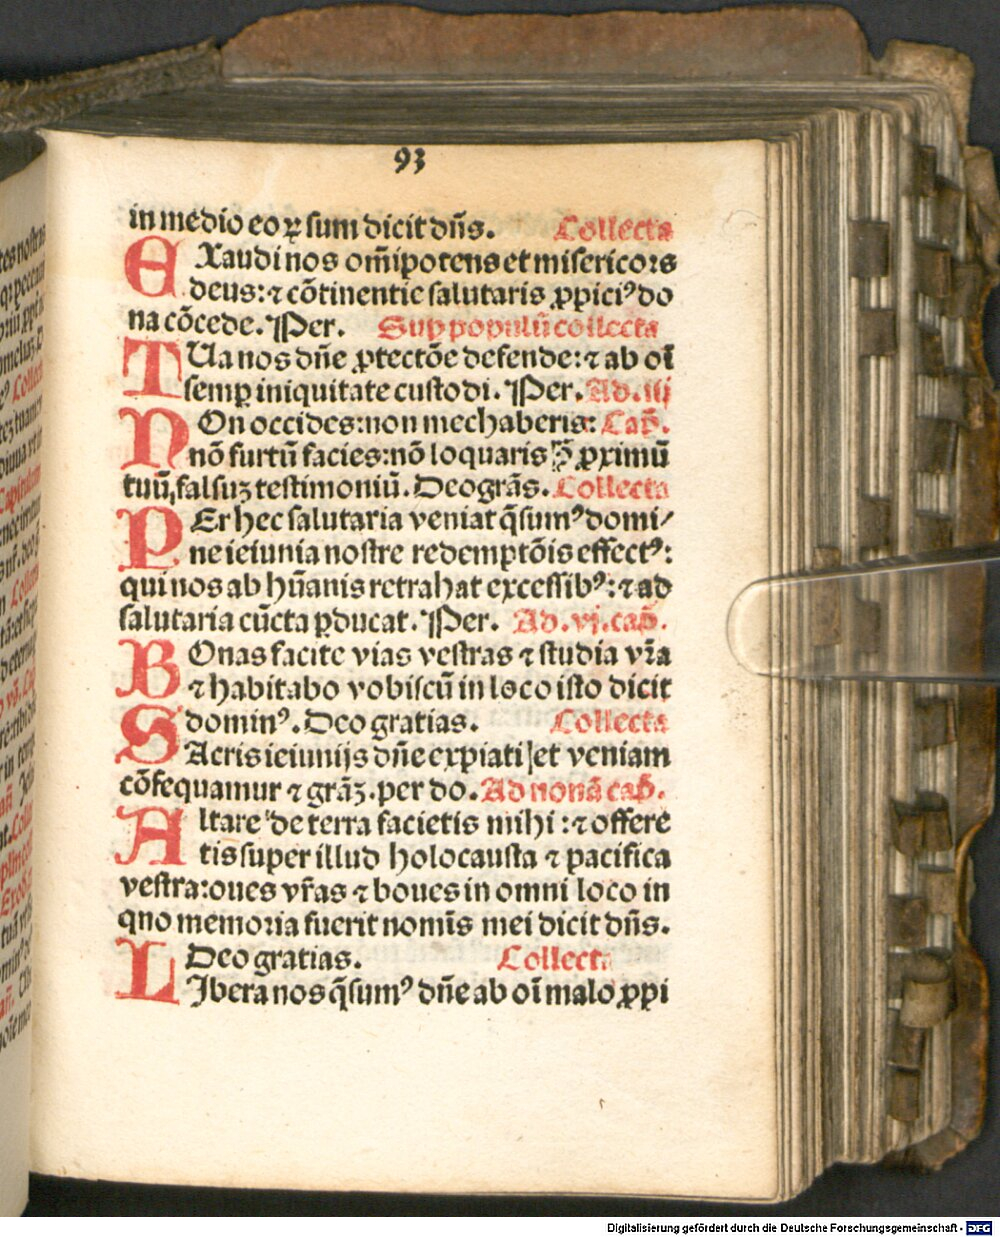 93
in medio eoꝝ sum dicit dn̄s. Collecta
EXaudi nos om̄ipotens et misericors
deus: ⁊ cōtinentie salutaris ꝓpiciꝰ do
na cōcede. Per. Sup populū collecta
TUa nos dn̄e ꝓtectōe defende: ⁊ ab oī
semꝑ iniquitate custodi. Per. Ad .iij
NOn occides: non mechaberis: Cap̄.
nō furtū facies: nō loquaris ꝓximū
tuū, falsuꝫ testimoniū. Deo grās. Collecta
PEr hec salutaria veniat q̄sumꝰ domi/
ne ieiunia nostre redemptōis effectꝰ:
qui nos ab hūanis retrahat excessibꝰ: ⁊ ad
salutaria cūcta ꝑducat. Per. Ad .vj. cap̄.
BOnas facite vias vestras ⁊ studia vr̄a
⁊ habitabo vobiscū in loco isto dicit
dominꝰ. Deo gratias. Collecta
SAcris ieiunijs dn̄e expiati et veniam
cōsequamur ⁊ grāꝫ. per do. Ad nonā cap̄.
Altare de terra facietis mihi: ⁊ offere
tis super illud holocausta ⁊ pacifica
vestra: oues vr̄as ⁊ boues in omni loco in
quo memoria fuerit nomīs mei dicit dn̄s.
Deo gratias. Collecta
LIbera nos q̄sumꝰ dn̄e ab oī malo ꝓpi
Digitalisierung gefördert durch die Deutsche Forschungsgemeinschaft - DFG